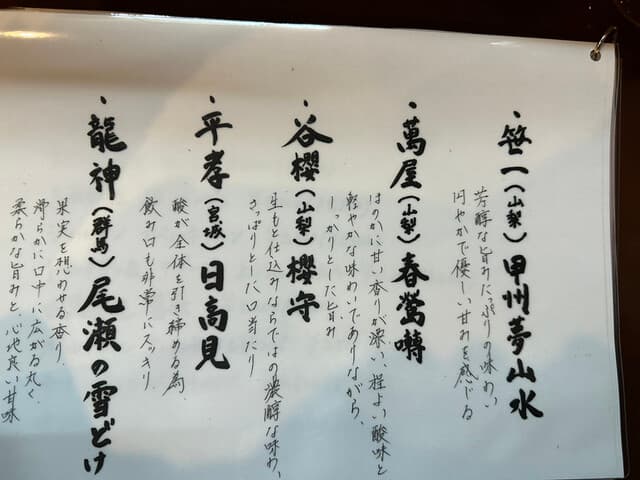 笹一(山梨)甲州夢山水
芳醇な旨みたっぷりの味わい、
円やかで優しい甘みを感じる
・萬屋(山梨)春鶯囀
ほのかに甘い香りが添い、程よい酸味と
軽やかな味わいでありながら、
しっかりとした旨み
・谷櫻(山梨)櫻守
生もと仕込みならではの濃醇な味わい、
さっぱりとした口当たり
・平孝(宮城)日高見
酸が全体を引き締める為、
飲み口も非常にスッキリ
・龍神(群馬)尾瀬の雪どけ
果実を想わせる香り、
滑らかに口中に広がる丸く、
柔らかな旨みと、心地良い甘味